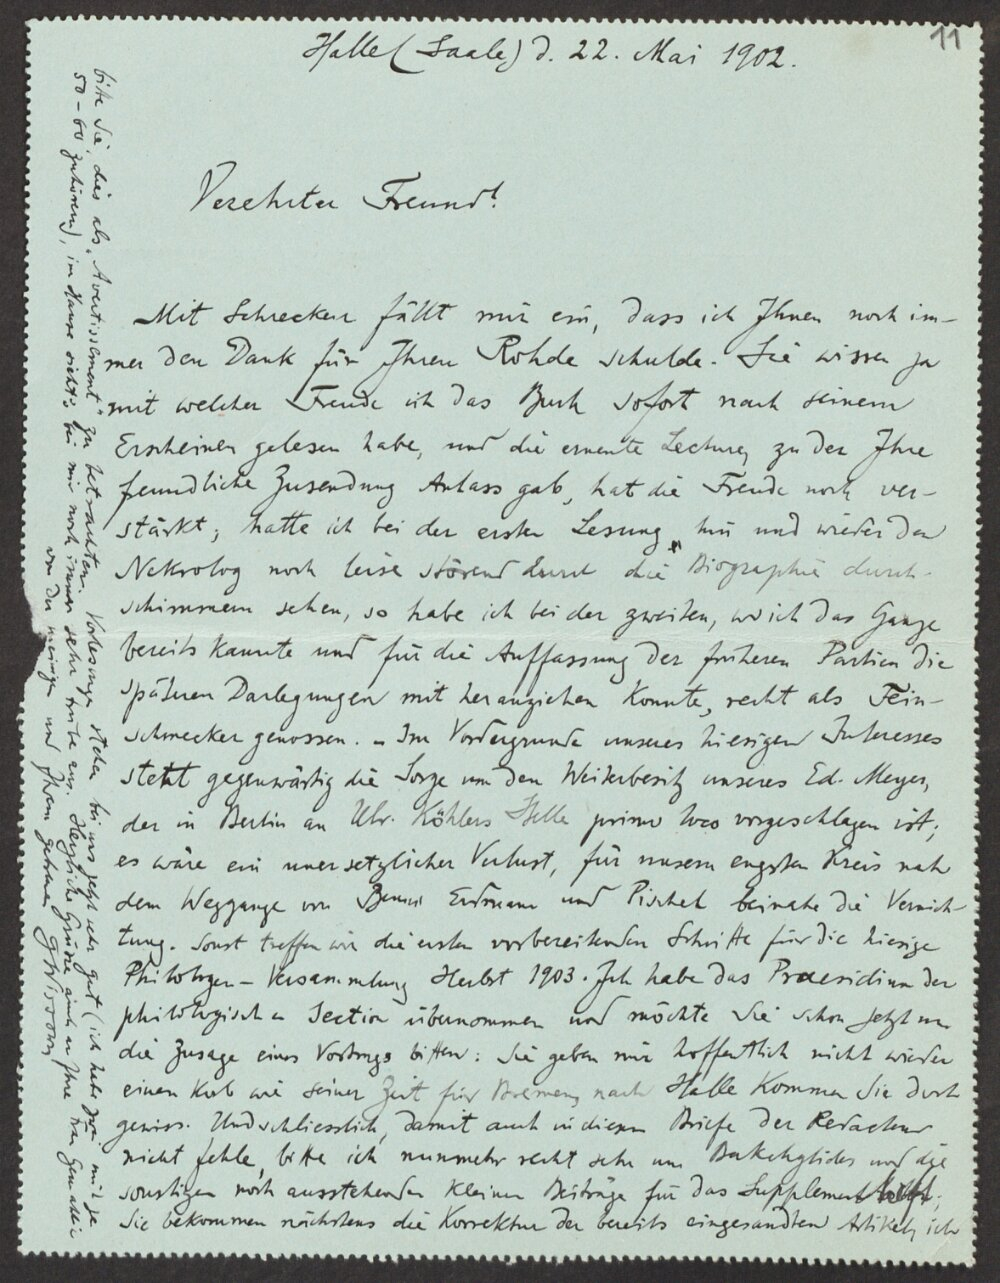 11
Halle (Saale) d. 22. Mai 1902.
Verehrter Freund!
Mit Schrecken fällt mir ein, dass ich Ihnen noch im-
mer den Dank für Ihren Rohde schulde. Sie wissen ja
mit welcher Freude ich das Buch sofort nach seinem
Erscheinen gelesen habe, und die erneute Lectüre, zu der Ihre
freundliche Zusendung Anlass gab, hat die Freude noch ver-
stärkt; hatte ich bei der ersten Lesung hin und wieder den
Nekrolog noch leise störend durch die Biographie durch-
schimmern sehen, so habe ich bei der zweiten, wo ich das Ganze
bereits kannte und für die Auffassung der früheren Partien die
späteren Darlegungen mit heranziehen konnte, recht als Fein-
schmecker genossen. – Im Vordergrunde unseres hiesigen Interesses
steht gegenwärtig die Sorge um den Weiterbesitz unseres Ed. Meyer,
der in Berlin an Ulr. Köhlers Stelle primo loco vorgeschlagen ist;
es wäre ein unersetzlicher Verlust, für unsern engsten Kreis nach
dem Weggange von Benno Erdmann und Pischel beinahe die Vernich-
tung. Sonst treffen wir die ersten vorbereitenden Schritte für die hiesige
Philologen-Versammlung Herbst 1903. Ich habe das Praesidium der
philologischen Section übernommen und möchte Sie schon jetzt um
die Zusage eines Vortrags bitten: Sie geben mir hoffentlich nicht wieder
einen Korb wie seiner Zeit für Bremen, nach Halle kommen Sie doch
gewiss. Und schliesslich, damit auch in diesem Briefe der Redacteur
nicht fehle, bitte ich nunmehr recht sehr um Bakchylides und die
sonstigen noch ausstehenden kleinen Beiträge für das Supplement;
Sie bekommen nächstens die Korrektur der bereits eingesandten Artikel, ich
bitte Sie, dies als "Avertissement" zu betrachten. Vorlesungen stehen bei uns jetzt sehr gut (ich habe zwei mit je
50–60 Zuhörern), im Hause sieht's bei mir noch immer sehr trübe aus. Herzliche Grüsse auch an Ihre Frau Gemahlin
von den meinigen und Ihrem getreuen GWissowa